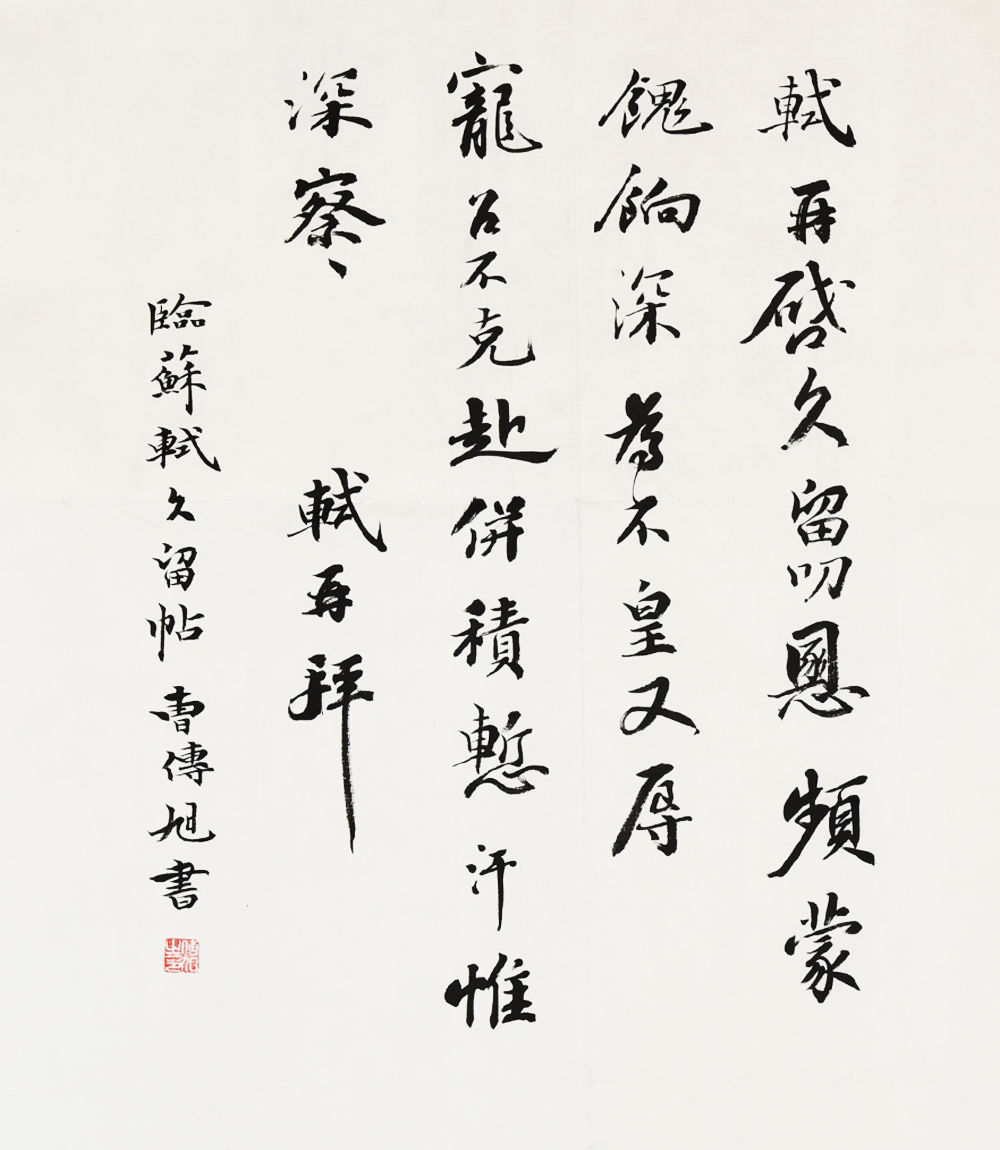 軾再啓久留叨恩頻蒙
餽餉深為不皇又辱
寵召不克赴併積慙汗惟
深察ヽ 軾再拜
臨蘇軾久留帖 曹傳旭書